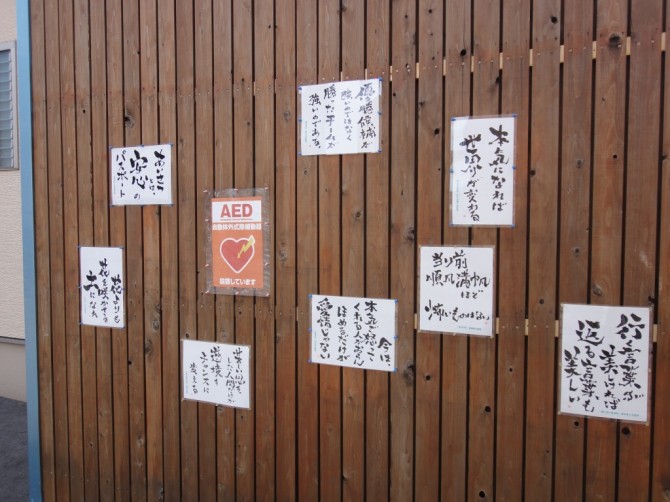 優勝候補が
強いのではなく
勝ったチームが
強いのである。
本気になれば
世界が変わる
あいさつ
とは、
安心の
パスポート
AED
自動体外式除細動器
設置しています
花よりも
花を咲かせる
土になれ
当り前
順風満帆
ほど
怖いものはない
今は、
本気で怒って
くれる人がおらん
ほめるだけが
愛情じゃない
行く言葉が
美しければ
返る言葉も
美しい
苦しい思いを
した人間だけが
逆境を
チャンスに
変える